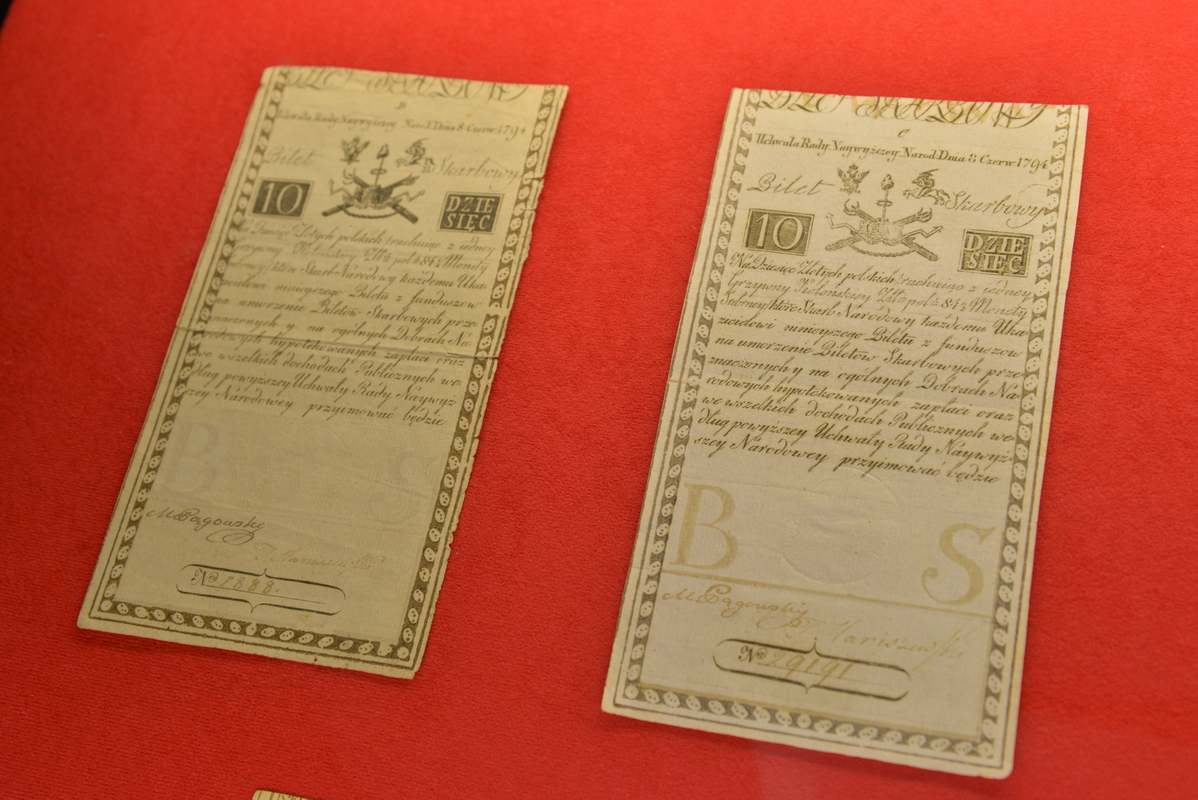 B
Uchwała Rady Naywyższey Narod. Dnia 8 Czerw. 1794
Bilet Skarbowy
10 DZIE
SIĘC
Złotych polskich rachuiąc z iedney
Grzywny Kolońskiey
które Skarb Narodowy każdemu Uka-
zicielowi ninieyszego Biletu z funduszow
na umorzenie Biletów Skarbowych prze-
znaczonych y na ogólnych Dobrach Na-
rodowych hypotekowanych zapłaci oraz
we wszelkich dochodach Publicznych we-
dług powyższey Uchwały Rady Naywyż-
szey Narodowey przyimować będzie
B S
MPągowsky
No 1888.
BILET SKARBOWY
C
Uchwała Rady Naywyższey Narod. Dnia 8 Czerw. 1794
Bilet Skarbowy
10 DZIE
SIĘC
Na Dziesięc Złotych polskich rachuiąc z iedney
Grzywny Kolońskiey Złto pol: 84½ Monety
Srebrney które Skarb Narodowy każdemu Uka-
zicielowi ninieyszego Biletu z funduszow
na umorzenie Biletów Skarbowych prze-
znaczonych y na ogólnych Dobrach Na-
rodowych hypotekowanych zapłaci oraz
we wszelkich dochodach Publicznych we-
dług powyższey Uchwały Rady Naywyż-
szey Narodowey przyimować będzie
B S
MPągowsky
No 29191